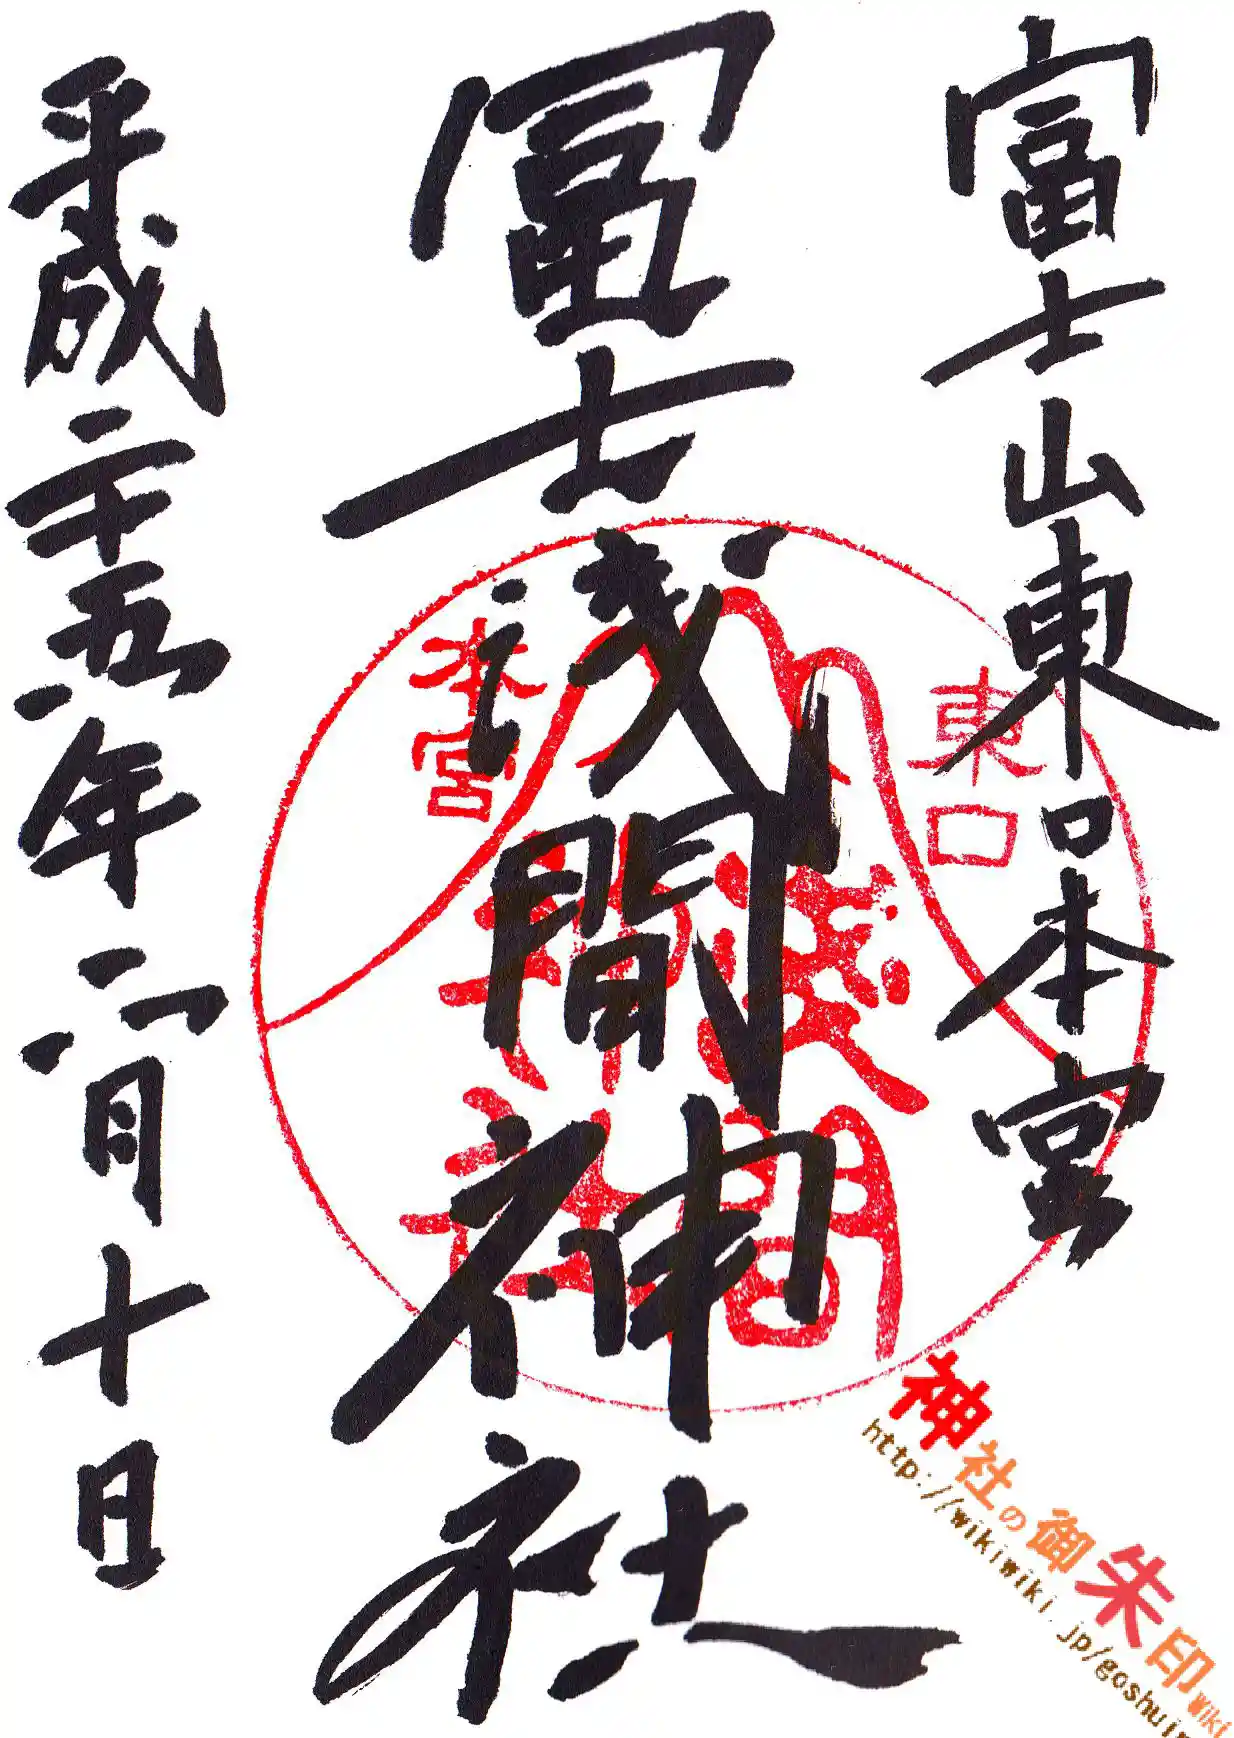 富士山東口本宮
冨士浅間神社
平成二十五年二月十日
東口
本宮
浅間
神社
神社の御朱印wiki
http://wikiwiki.jp/goshuin